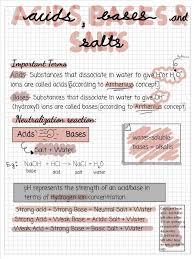 ACIDS, BASES &
SALTS
acids, bases and
salts
Important Terms
Acids- Substances that dissociate in water to give H⁺ or H₃O⁺
ions are called acids (according to Arrhenius concept)
Bases- Substances that dissociate in water to give OH⁻
(hydroxyl) ions are called bases (according to Arrhenius concept)
Neutralization reaction
Acids Bases
Salt + Water
water-soluble
bases = alkalis
E.g:- NaOH + HCl → NaCl + H₂O
base acid salt water
pH represents the strength of an acid/base in
terms of Hydrogen ion concentration
Strong Acid + Strong Base = Neutral Salt + Water
Strong Acid + Weak Base = Acidic Salt + Water
Weak Acid + Strong Base = Basic Salt + Water